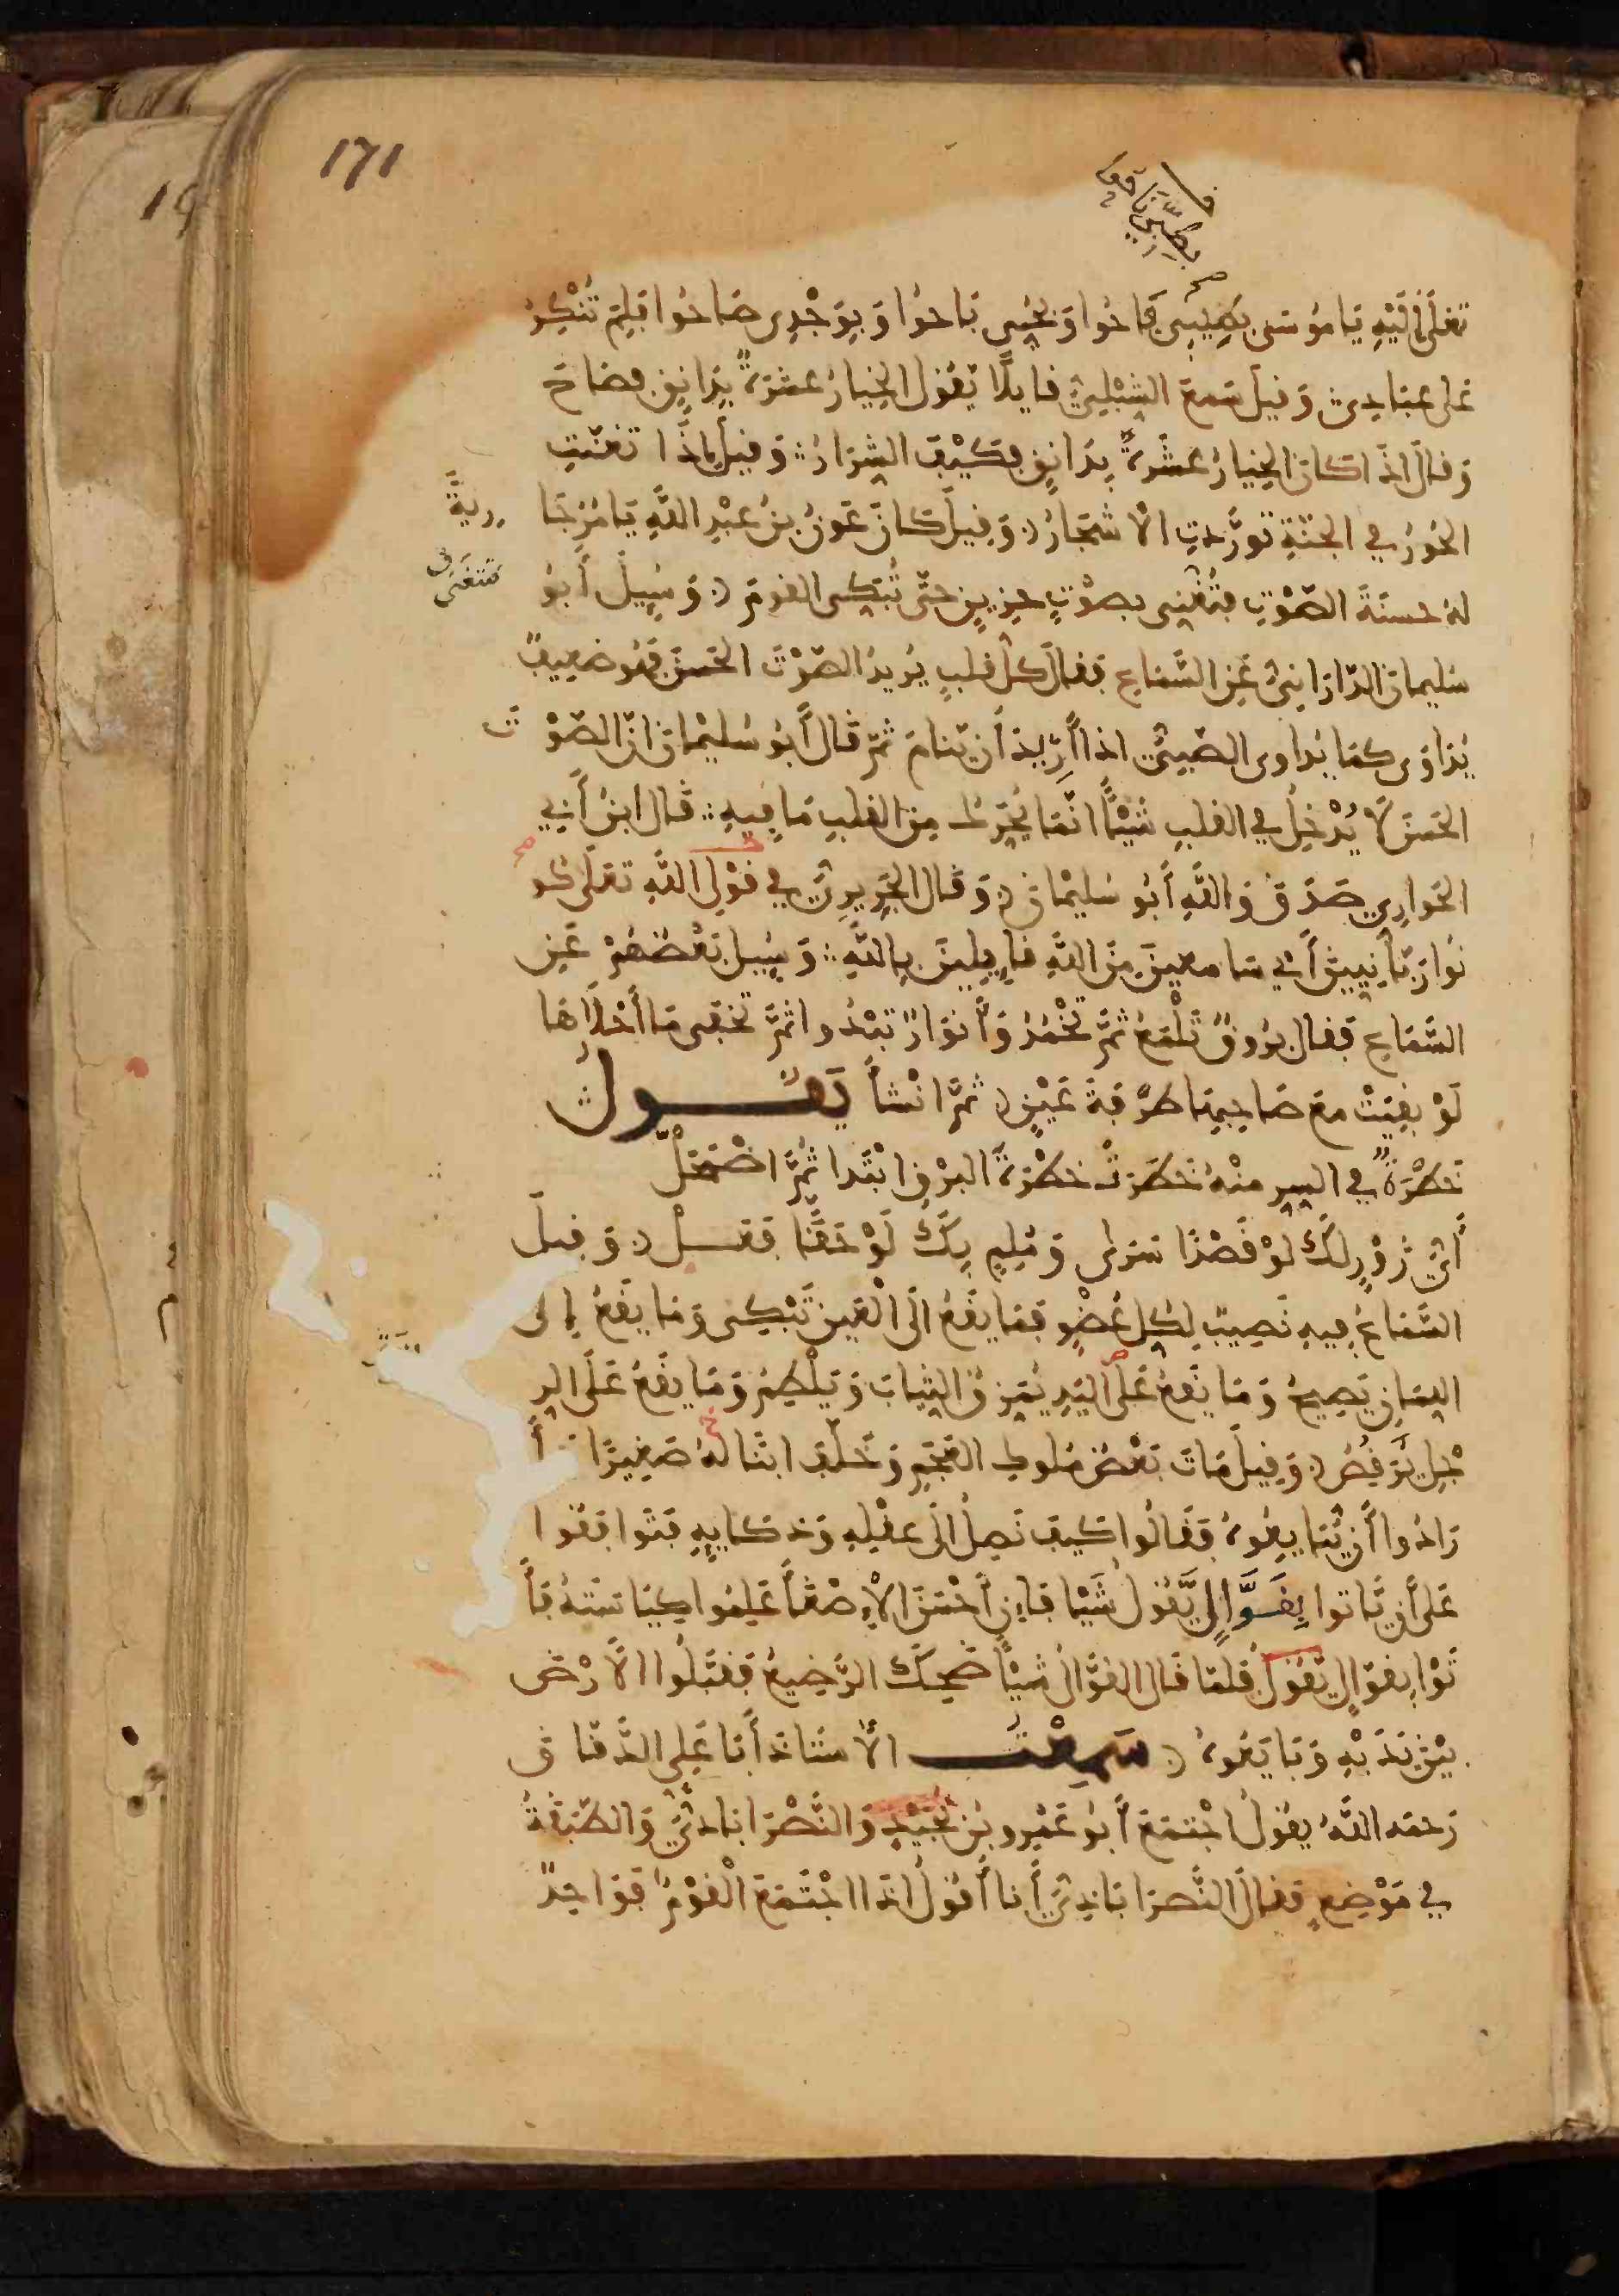 171
تعلى إليه يا موسى بطيبي فاحوا وبحبي باحوا وبوجدي صاحوا فلم تنكر
على عبادي وفيل سمع الشبلي فايلا يقول الخيار عشرة بدانق فصاح
وفال اذا كان الخيار عشرة بدانق فكيف الشرار وفيل إذا تغنت
الحور في الجنة توردت الأشجار وفيل كان عون بن عبد الله يامر جا
رية
له حسنة الصوت فتغني بصوت حزين حتى تبكي الفوم وسيل أبو
سليمان الداراني عن السماع ففال كل فلب يريد الصوت الحسن فهو ضعيف
يداوى كما يداوى الصبي اذا أريد أن ينام ثم فال أبو سليمان ان الصو
ت
الحسن لا يدخل في الفلب شيئا انما يحرك من الفلب ما فيه فال ابن أبي
الحواري صدق والله أبو سليمان وفال الجريري في فول الله تعلى كو
نوا ربانيين أي سامعين من الله فايلين بالله وسيل بعضهم عن
السماع ففال بروق تلمع ثم تخمد وأنوار تبدوا ثم تخفى ما أحلاها
لو بفيت مع صاحبها طرفة عين ثم انشأ يفول
خطرة في السر منه خطرت خطرة البرق ابتدا ثم اضمحل
أي زور لك لو فصدا سرى وملم بك لو حفا فعل وفيل
السماع فيه نصيب لكل عضو فما يفع الى العين تبكي وما يفع إلى
اللسان يصيح وما يفع على اليد يمزق الثياب ويلطم وما يفع على الر
جل يرفص وفيل مات بعض ملوك العجم وخلف ابنا له صغيرا أ
رادوا أن يبايعوه ففالوا كيف نصل الى عفله وذكايه فتوافقوا
على أن ياتوا بفوال يفول شيا فإن أحسن الإصغا علموا كياسته فأ
توا بفوال يفول فلما فال الفوال شيئا ضحك الرضيع ففبلوا الأرض
بين يديه وبايعوه سمعت الأستاذ أبا علي الدفاق
رحمه الله يفول اجتمع أبو عمرو بن نجيد والنصراباذي والطبفة
في موضع ففال النصراباذي أنا أفول اذا اجتمع الفوم فواحد